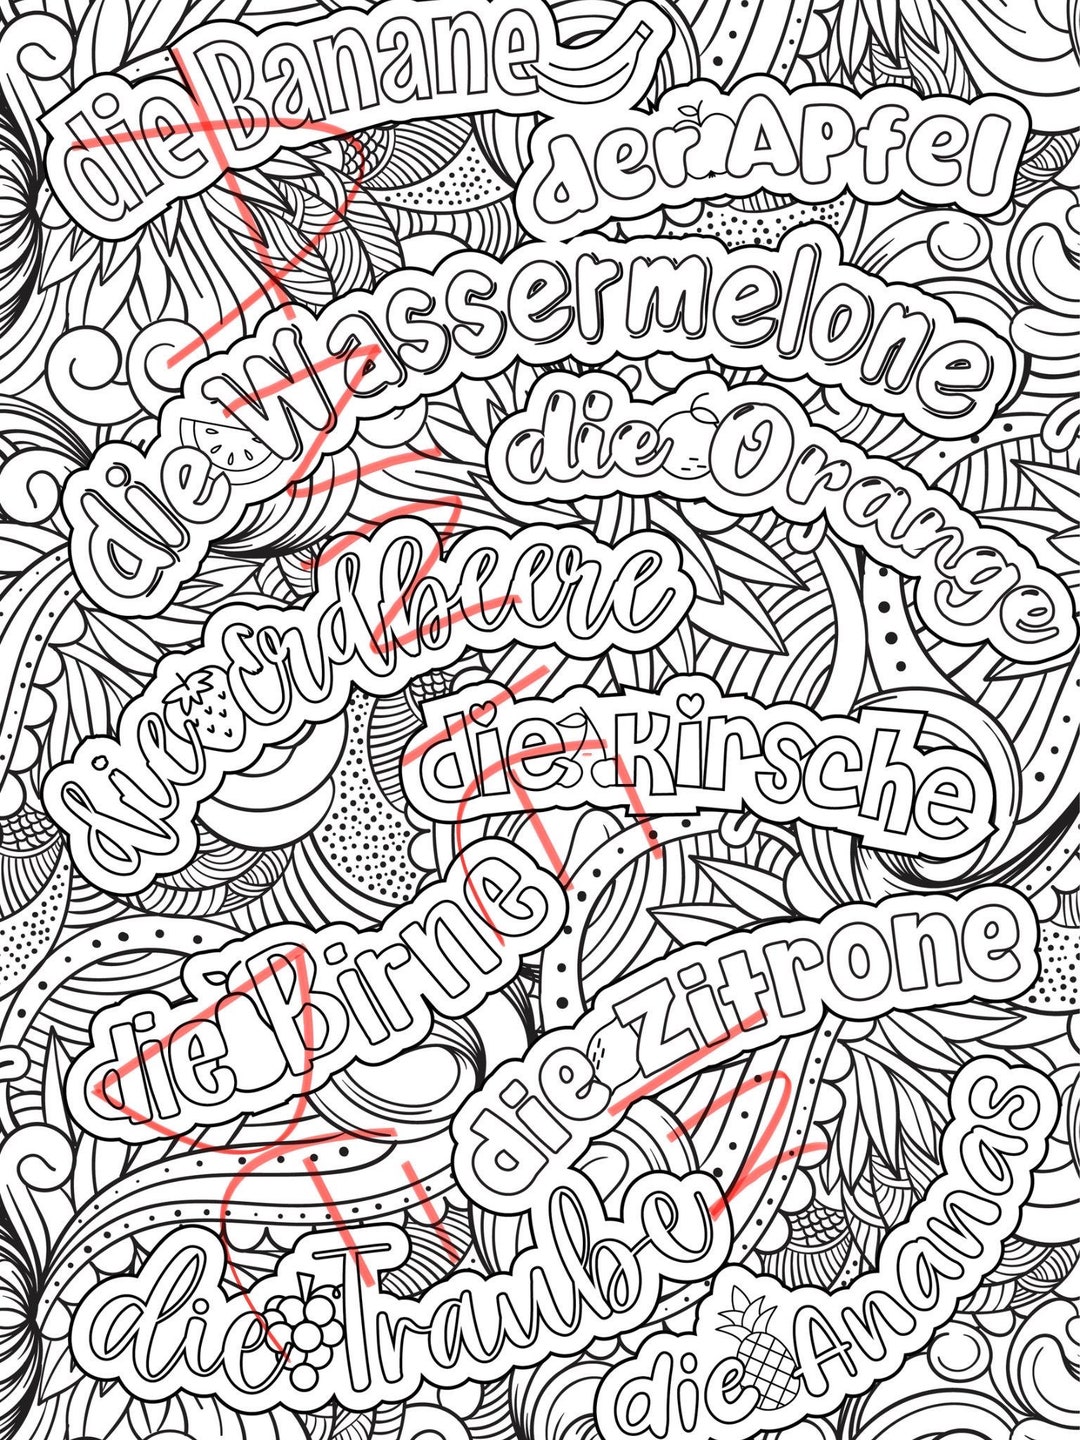 die Banane
der Apfel
die Wassermelone
die Orange
die Erdbeere
die Kirsche
die Birne
die Zitrone
die Traube
die Ananas